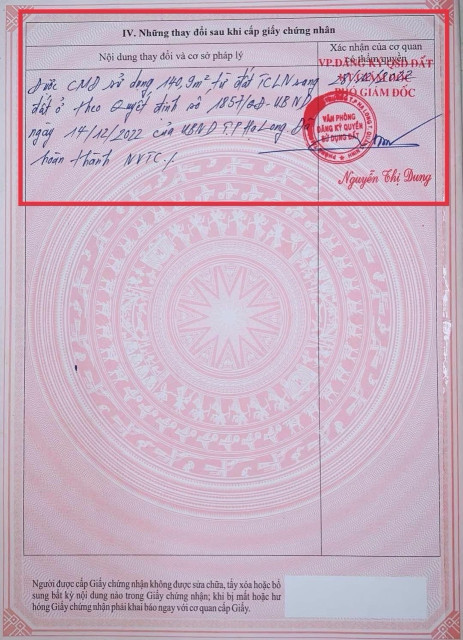 IV. Những thay đổi sau khi cấp giấy chứng nhận
Nội dung thay đổi và cơ sở pháp lý
Xác nhận của cơ quan
có thẩm quyền
VP.ĐĂNG KÝ QSD ĐẤT
PHÓ GIÁM ĐỐC
Được CMĐ sử dụng 140,9m² từ đất TCLN sang
đất ở theo Quyết định số 1857/QĐ-UBND
ngày 14/12/2022 của UBND T.P Hạ Long. Đã
hoàn thành NVTC./
VĂN PHÒNG
ĐĂNG KÝ QUYỀN
SỬ DỤNG ĐẤT
Nguyễn Thị Dung
Người được cấp Giấy chứng nhận không được sửa chữa, tẩy xóa hoặc bổ
sung bất kỳ nội dung nào trong Giấy chứng nhận; khi bị mất hoặc hư
hỏng Giấy chứng nhận phải khai báo ngay với cơ quan cấp Giấy.